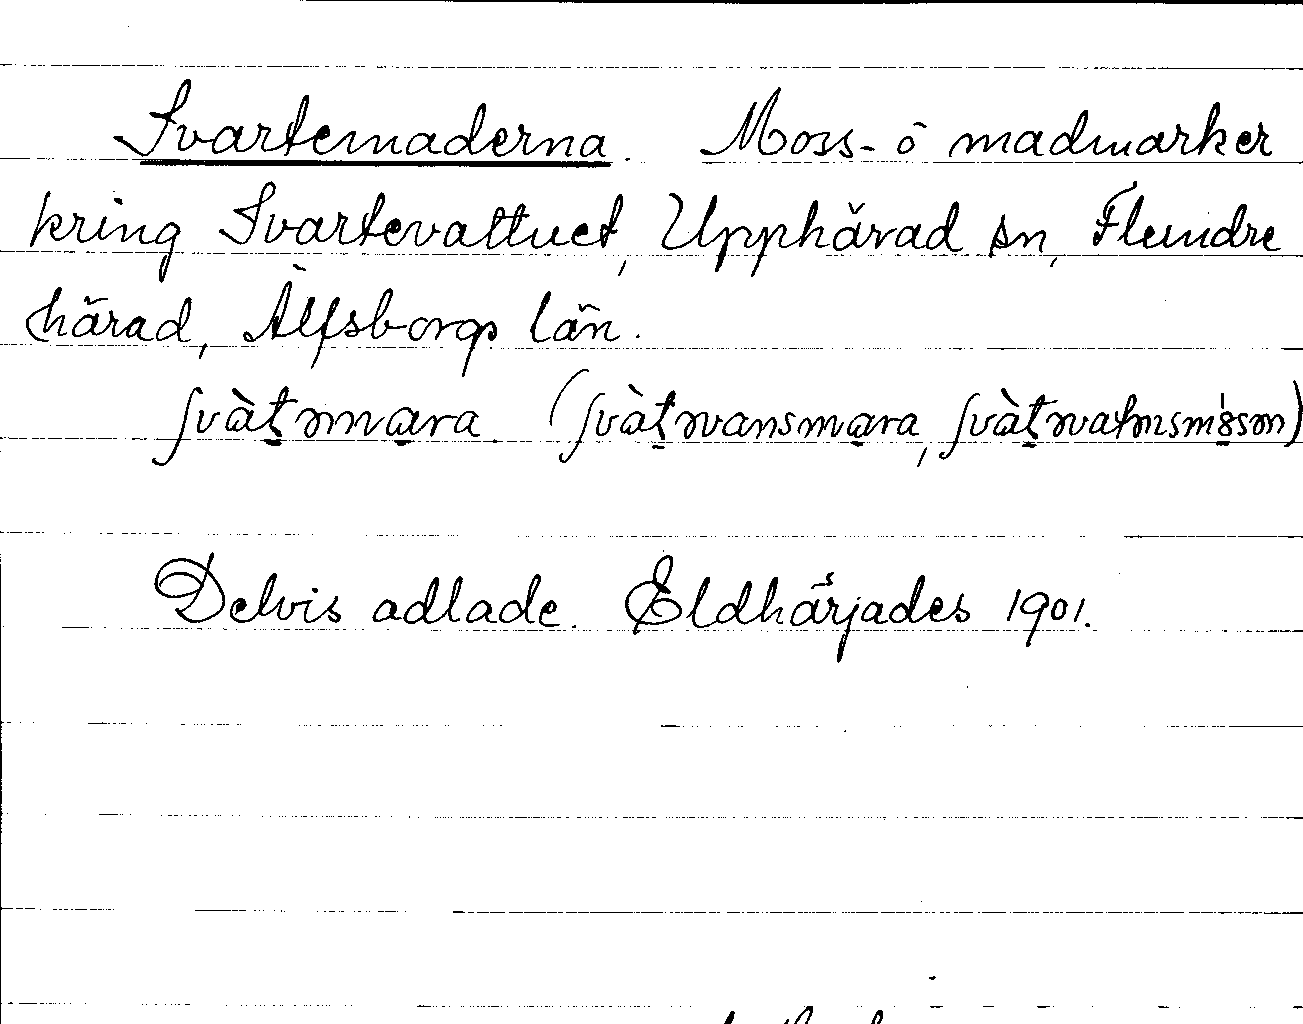 Svartemaderna. Moss- o madmarker
kring Svartevattnet, Upphärad sn, Flundre
härad, Älfsborgs län.
svàtmmara. (svàtvansmara, svàtvatnsmosm)
Delvis adlade. Eldhärjades 1901.